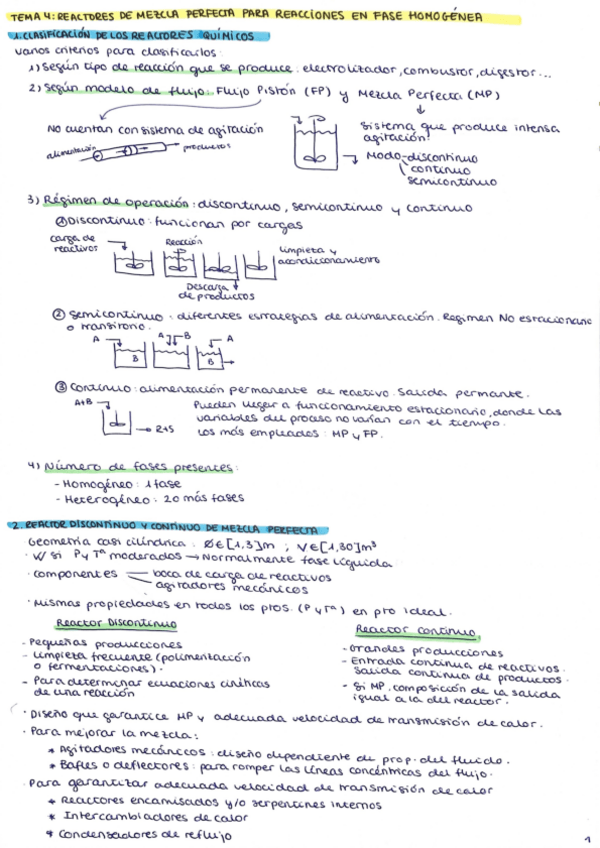 TEMA 4: REACTORES DE MEZCLA PERFECTA PARA REACCIONES EN FASE HOMOGÉNEA
1. CLASIFICACIÓN DE LOS REACTORES QUÍMICOS
Varios criterios para clasificarlos:
1) Según tipo de reacción que se produce: electrolizador, combustor, digestor...
2) Según modelo de flujo: Flujo Pistón (FP) y Mezcla Perfecta (MP)
No cuentan con sistema de agitación
alimentación
productos
Sistema que produce intensa
agitación!
Modo - discontinuo
continuo
semicontinuo
3) Régimen de operación: discontinuo, semicontinuo y continuo
① Discontinuo: funcionan por cargas
carga de
reactivos
Reacción
Descarga
de productos
Limpieza y
acondicionamiento
② Semicontinuo: diferentes estrategias de alimentación. Regimen NO estacionario
o transitorio.
A
B
A
B
A
B
③ Continuo: alimentación permanente de reactivo. Salida permante.
A+B
R+S
Pueden llegar a funcionamiento estacionario, donde las
variables del proceso no varían con el tiempo.
Los más empleados: MP y FP.
4) Número de fases presentes:
- Homogéneo: 1 fase
- Heterogéneo: 2 o más fases
2. REACTOR DISCONTINUO Y CONTINUO DE MEZCLA PERFECTA
Geometría casi cilíndrica: Ø∈[1,3]m ; V∈[1,30]m³
· W si P y Tª moderados → Normalmente fase líquida
· componentes
boca de carga de reactivos
agitadores mecánicos
· Mismas propiedades en todos los ptos. (P y Tª) en pto ideal.
Reactor Discontinuo
- Pequeñas producciones
- Limpieza frecuente (polimerización
o fermentaciones).
- Para determinar ecuaciones cinéticas
de una reacción
Reactor continuo
- Grandes producciones
- Entrada continua de reactivos.
Salida continua de productos.
- Si MP, composición de la salida
igual a la del reactor.
· Diseño que garantice MP y adecuada velocidad de transmisión de calor.
· Para mejorar la mezcla:
* Agitadores mecánicos: diseño dependiente de prop. del fluido.
* Bafles o deflectores: para romper las líneas concéntricas del flujo.
· Para garantizar adecuada velocidad de transmisión de calor
* Reactores encamisados y/o serpentines internos
* Intercambiadores de calor
* Condensadores de reflujo
1